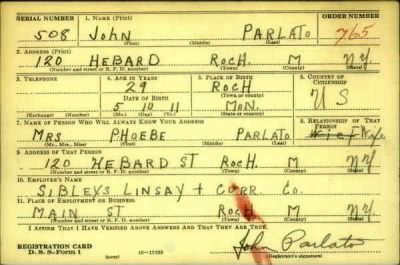 SERIAL NUMBER 1. NAME (Print) ORDER NUMBER
508 JOHN PARLATO 765
(First) (Middle) (Last)
2. ADDRESS (Print)
120 HEBARD ROCH. M NY.
(Number and street or R. F. D. number) (Town) (County) (State)
3. TELEPHONE 4. AGE IN YEARS 5. PLACE OF BIRTH 6. COUNTRY OF CITIZENSHIP
29 ROCH U S
DATE OF BIRTH (Town or county)
5 10 11 MON.
(Exchange) (Number) (Mo.) (Day) (Yr.) (State or country)
7. NAME OF PERSON WHO WILL ALWAYS KNOW YOUR ADDRESS 8. RELATIONSHIP OF THAT PERSON
MRS PHOEBE PARLATO Wife
(Mr., Mrs., Miss) (First) (Middle) (Last)
9. ADDRESS OF THAT PERSON
120 HEBARD ST ROCH M NY
(Number and street or R. F. D. number) (Town) (County) (State)
10. EMPLOYER'S NAME
SIBLEYS LINSAY + CURR. CO.
11. PLACE OF EMPLOYMENT OR BUSINESS
MAIN ST ROCH M NY
(Number and street or R. F. D. number) (Town) (County) (State)
I AFFIRM THAT I HAVE VERIFIED ABOVE ANSWERS AND THAT THEY ARE TRUE.
REGISTRATION CARD
D. S. S. Form 1 (over) John Parlato
(Registrant's signature)